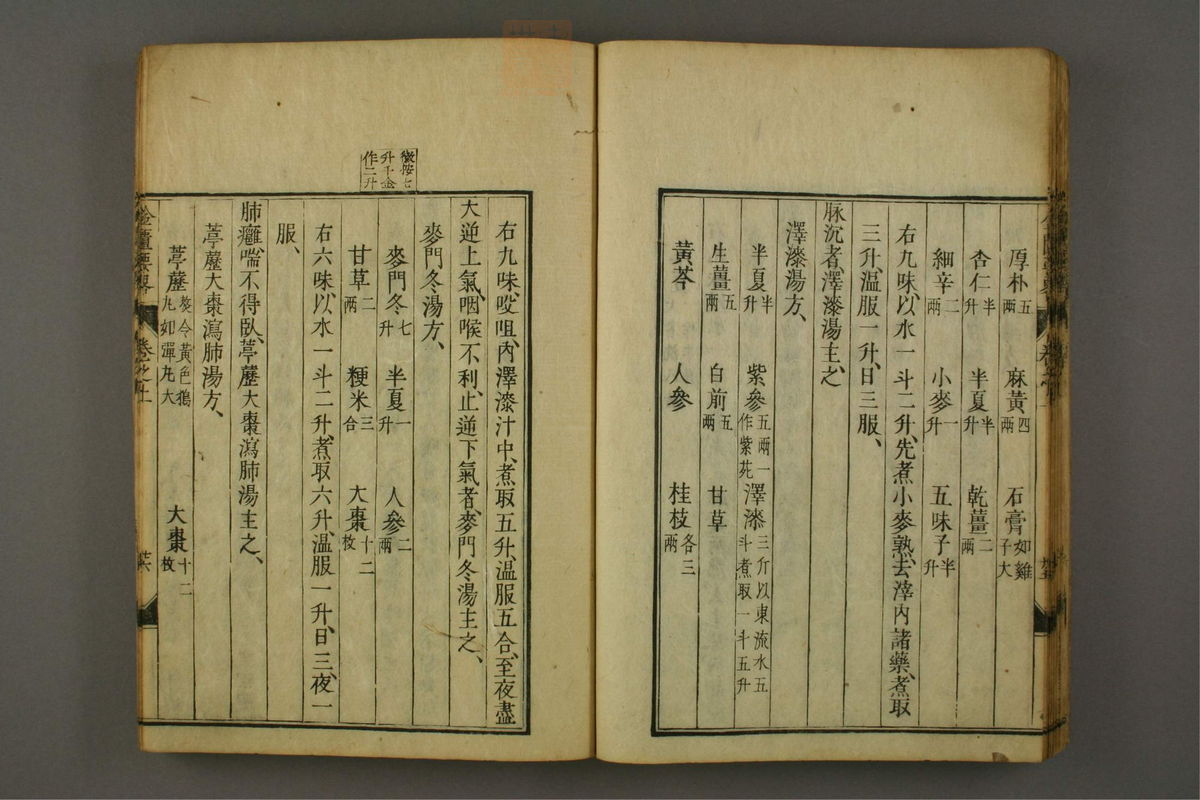 厚朴五兩　麻黃四兩　石膏如雞子大
杏仁半升　半夏半升　乾薑二兩
細辛二兩　小麥一升　五味子半升
右九味、以水一斗二升、先煮小麥熟、去滓、內諸藥、煮取
三升、溫服一升、日三服、
脉沉者、澤漆湯主之
澤漆湯方、
半夏半升　紫參五兩一作紫菀　澤漆三斤以東流水五斗煮取一斗五升
生薑五兩　白前五兩　甘草
黃芩　人參　桂枝各三兩
右九味、㕮咀、內澤漆汁中、煮取五升、溫服五合、至夜盡
大逆上氣、咽喉不利、止逆下氣者、麥門冬湯主之、
麥門冬湯方、
徵按七升千金作二升
麥門冬七升　半夏一升　人參二兩
甘草二兩　粳米三合　大棗十二枚
右六味、以水一斗二升、煮取六升、溫服一升、日三、夜一
服、
肺癰、喘不得臥、葶藶大棗瀉肺湯主之、
葶藶大棗瀉肺湯方、
葶藶熬令黃色擣丸如彈丸大　大棗十二枚
金匱要略　卷之上　廿六